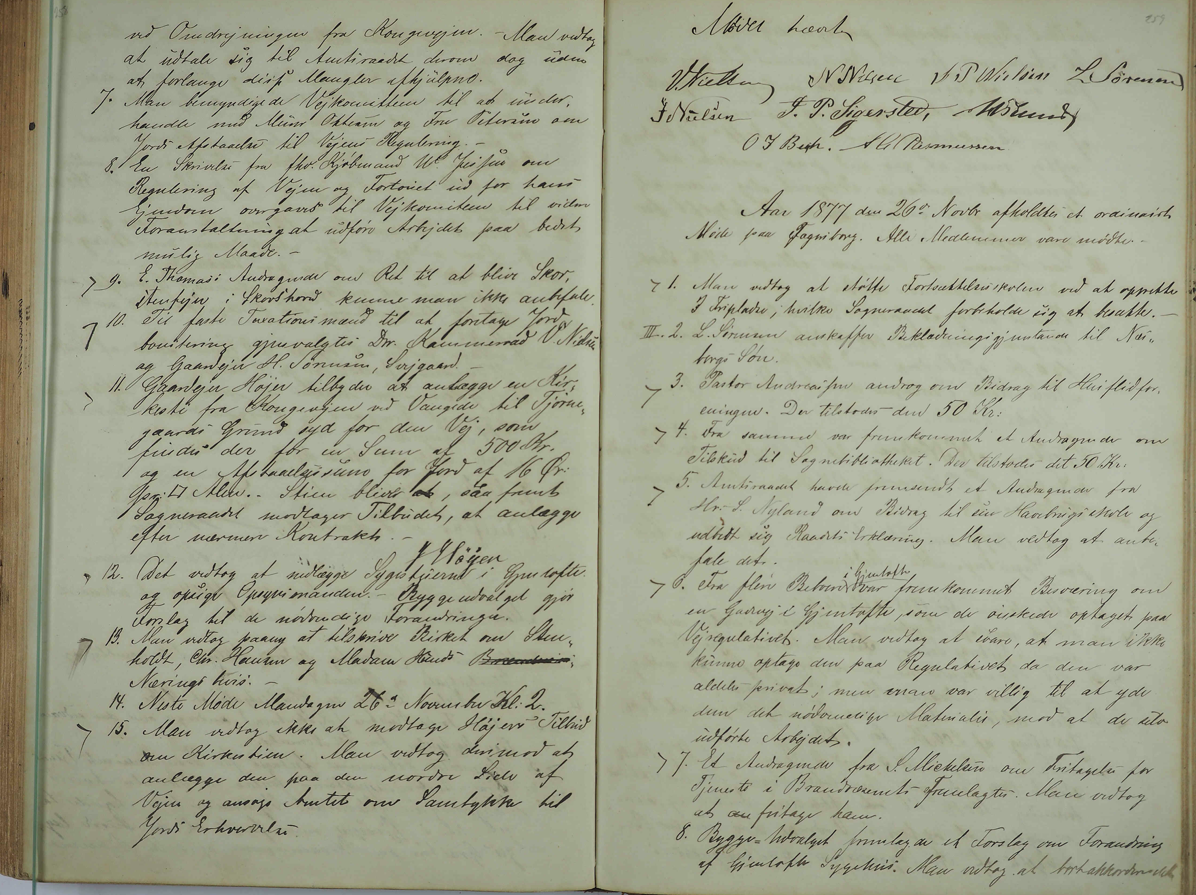 ved Omdrejningen fra Kongevejen. - Man vedtog
at udtale sig til Amtsraadet derom dog uden
at forlange disse Mangler afhjulpne.
7. Man bemyndigede Vejkomiteen til at under-
handle med Murer Ottesen og Fru Petersen om
Jords Afstaaelse til Vejens Regulering. -
8. En Skrivelse fra fhv. Kjøbmand W. om
Regulering af Vejen og Fortovet ud for hans
Ejendom overgaves til Vejkomiteen til videre
Foranstaltning at udføre Arbejdet paa bedst
mulig Maade. -
9. E. Thomas's Andragende om Ret til at blive Skor-
stensfejer i Skovshoved kunne man ikke anbefale.
10. Til faste Taxationsmænd til at foretage Jord-
bonitering gjenvalgtes Dr. Kammerraad V. Nielsen
og Gaardejer H. Sørensen,
11. Gaardejer Højer tilbyder at anlægge en Kir-
kesti fra Kongevejen ved Vangede til Tjørne-
gaards Grund syd for den Vej, som
findes der for en Sum af 500 Kr.
og en Afstaaelsessum for Jord af 16 Ør:
pr: □ Alen. - Stien bliver at, saa fremt
Sogneraadet modtager Tilbudet, at anlægge
efter nærmere Kontrakt. -
12. Det vedtog at nedlægge Sygestuerne i Gentofte
og opsige Opsynsmanden. - Byggeudvalget gjør
Forslag til de nødvendige Forandringer.
13. Man vedtog paany at tilskrive Birket om Sten-
holdt, Chr. Hansen og Madam
Nærings hvis. -
14. Næste Møde Mandagen 26de November Kl. 2.
15. Man vedtog ikke at modtage Højers Tilbud
om Kirkestien. Man vedtog derimod at
anlægge den paa den nordre Side af
Vejen og ansøge Amtet om Samtykke til
Jords Erhvervelse.
259
Mødet hævet
V Nielsen N Nielsen P Nielsen L. Sørensen
J Nielsen F. P. Sigersted,
O J Bech. A C Rasmussen
Aar 1877 den 26de Novbr afholdtes et ordinairt
Møde paa Føgnsborg. Alle Medlemmer vare mødte. -
1. Man vedtog at støtte Fortsættelsesskolen ved at oprette
3 Fripladser, hvilke Sogneraadet forbeholdt sig at besætte. -
III. 2. L. Sørensen anskaffer Beklædningsgjenstande til Næs-
borgs Søn.
3. Pastor Andreassen androg om Bidrag til Husflidsfor-
eningen. Der tilstodes den 50 Kr:
4. Fra samme var fremkommet et Andragende om
Tilskud til Sognebibliotheket. Der tilstodes det 50 Kr.
5. Amtsraadet havde fremsendt et Andragende fra
Hr. S. Nyland om Bidrag til en Havebrugsskole og
udbedt sig Raadets Erklæring. Man vedtog at anbe-
fale det.
6. Fra flere Beboere i Gjentofte var fremkommet Besværing om
en Gadevej i Gjentofte, som de ønskede optaget paa
Vejregulativet. Man vedtog at svare, at man ikke
kunne optage den paa Regulativet da den var
aldeles privat; men man var villig til at yde
dem det nødvendige Materiale, mod at de selv
udførte Arbejdet.
7. Et Andragende fra S. Mickelsen om Fritagelse for
Tjeneste i Brandvæsenets fremlagtes. Man vedtog
at fritage ham.
8. Bygge-Udvalget fremlagde et Forslag om Forandring
af Gjentofte Sygehus. Man vedtog at bortakkordere